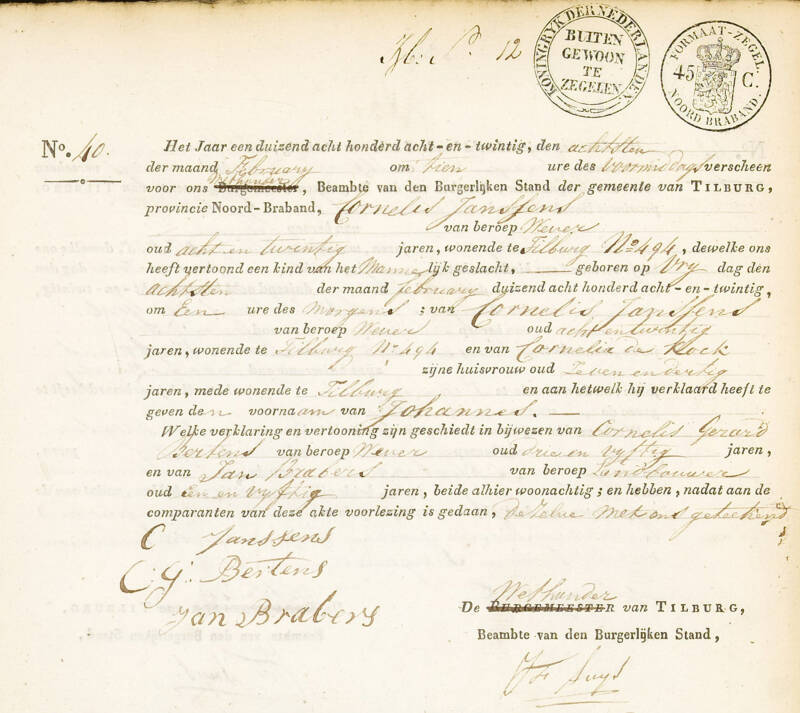 12
KONINGRYK DER NEDERLANDEN.
BUITEN
GEWOON
TE
ZEGELEN
FORMAAT-ZEGEL.
45 C.
NOORD BRABAND.
No. 40.
Het Jaar een duizend acht honderd acht-en-twintig, den achtsten
der maand February om tien ure des voormiddags verscheen
Wethouder
voor ons Burgemeester, Beambte van den Burgerlijken Stand der gemeente van TILBURG,
provincie Noord-Braband, Cornelis Janssens
van beroep Wever
oud acht en twintig jaren, wonende te Tilburg No 494, dewelke ons
heeft vertoond een kind van het Manne lijk geslacht, — geboren op Vry dag den
achtsten der maand february duizend acht honderd acht-en-twintig,
om Een ure des morgens ; van Cornelis Janssens
van beroep Wever oud acht en twintig
jaren, wonende te Tilburg No 494 en van Cornelia de Kock
zijne huisvrouw oud Zeven en dertig
jaren, mede wonende te Tilburg en aan hetwelk hij verklaard heeft te
geven den voornaam van Johannes. —
Welke verklaring en vertooning zijn geschiedt in bijwezen van Cornelis Gerard
Bertens van beroep Wever oud drie en vyftig jaren,
en van Jan Brabers van beroep Landbouwer
oud een en vyftig jaren, beide alhier woonachtig ; en hebben, nadat aan de
comparanten van deze akte voorlezing is gedaan, dezelve met ons geteekend
C Janssens
C G: Bertens
Jan Brabers
Wethouder
De BURGEMEESTER van TILBURG,
Beambte van den Burgerlijken Stand,
Suys